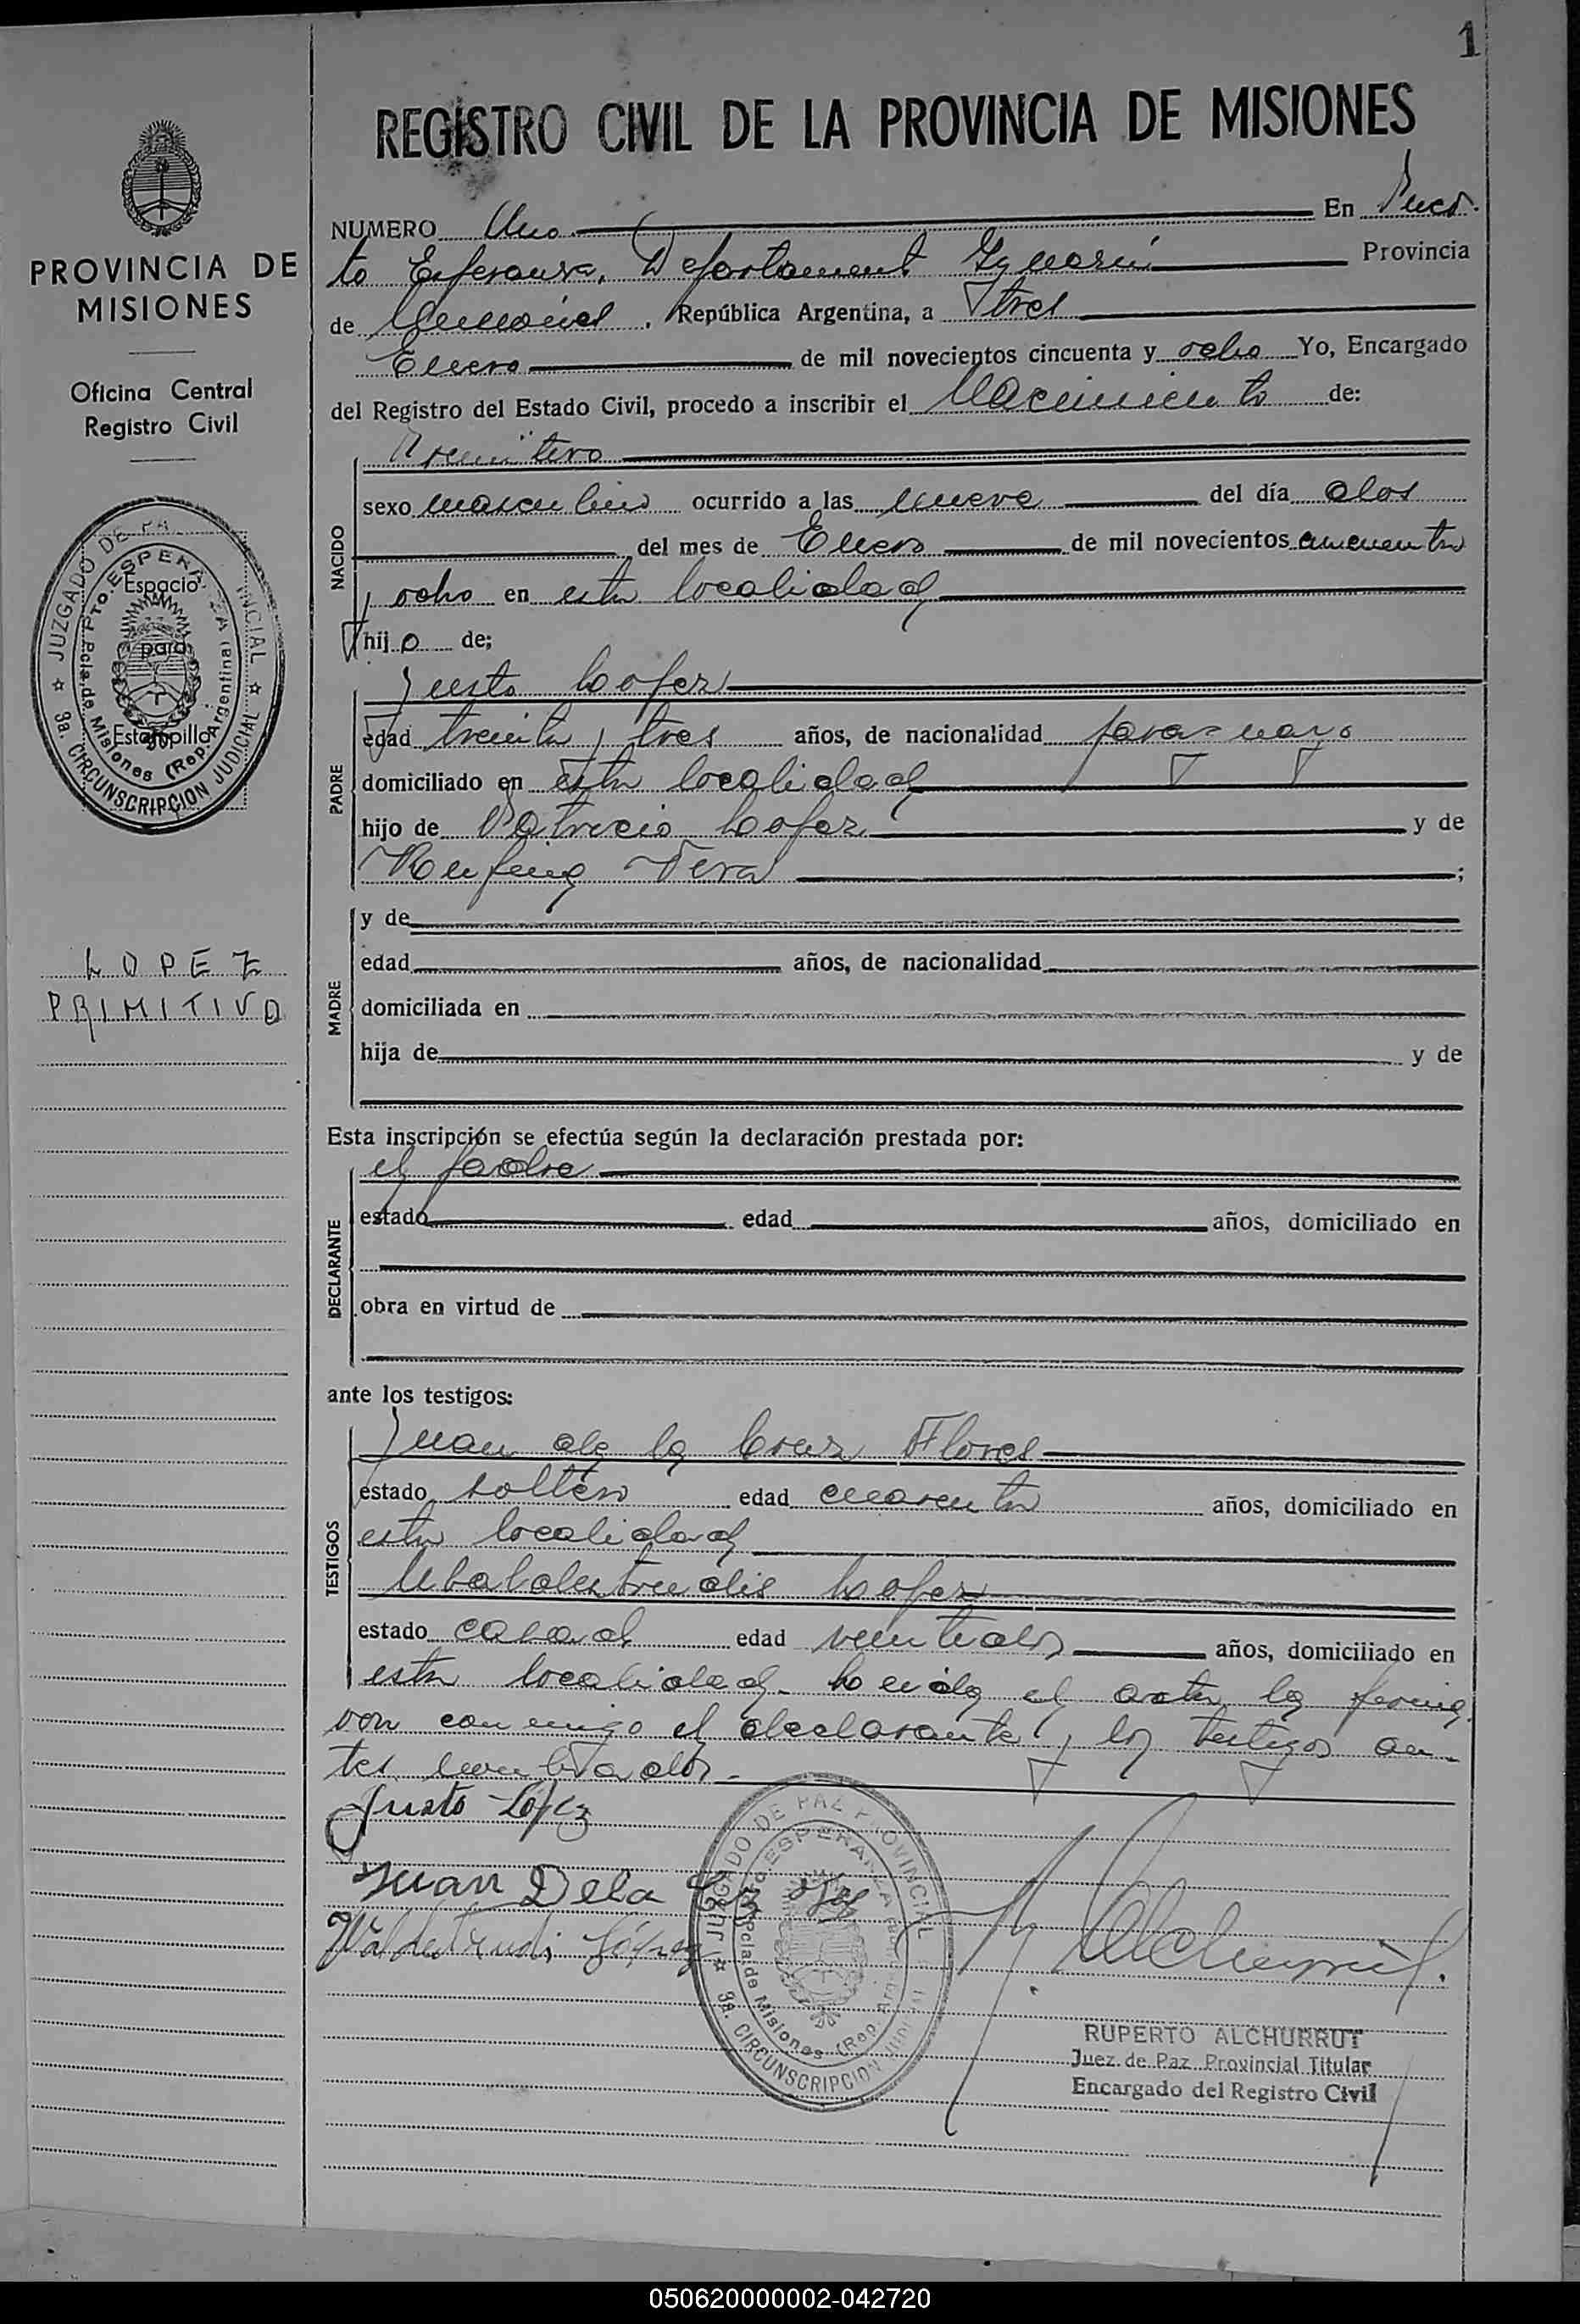 1
REGISTRO CIVIL DE LA PROVINCIA DE MISIONES
NUMERO Uno En Puer
to Esperanza, Departamento Iguazú Provincia
de Misiones, República Argentina, a tres
Enero de mil novecientos cincuenta y ocho Yo, Encargado
del Registro del Estado Civil, procedo a inscribir el Nacimiento de:
Primitivo
NACIDO
sexo masculino ocurrido a las nueve del día dos
del mes de Enero de mil novecientos cincuenta
y ocho en esta localidad
hijo de;
Justo Lopez
PADRE
edad treinta y tres años, de nacionalidad paraguayo
domiciliado en esta localidad
hijo de Patricio Lopez y de
Rufina Vera ;
MADRE
y de
edad años, de nacionalidad
domiciliada en
hija de y de
Esta inscripción se efectúa según la declaración prestada por:
el padre
DECLARANTE
estado edad años, domiciliado en
obra en virtud de
ante los testigos:
TESTIGOS
Juan de la Cruz Flores
estado soltero edad cuarenta años, domiciliado en
esta localidad
Lopez
estado casado edad veintidos años, domiciliado en
esta localidad. Leida el acta, la firma
ron conmigo el declarante y los testigos an-
tes nombrados.-
Justo López
Juan Dela
Valdetrudi López
RUPERTO ALCHURRUT
Juez de Paz Provincial Titular
Encargado del Registro Civil
JUZGADO DE PAZ PROVINCIAL
3a. CIRCUNSCRIPCION JUDICIAL
PTO. ESPERANZA
Pcia. de Misiones (Rep. Argentina)
PROVINCIA DE
MISIONES
Oficina Central
Registro Civil
JUZGADO DE PA INCIAL
3a. CIRCUNSCRIPCION JUDICIAL
PTO. ESPERANZA
Pcia. de Misiones (Rep. Argentina)
Espacio
para
Estampilla
LOPEZ
PRIMITIVO
050620000002-042720